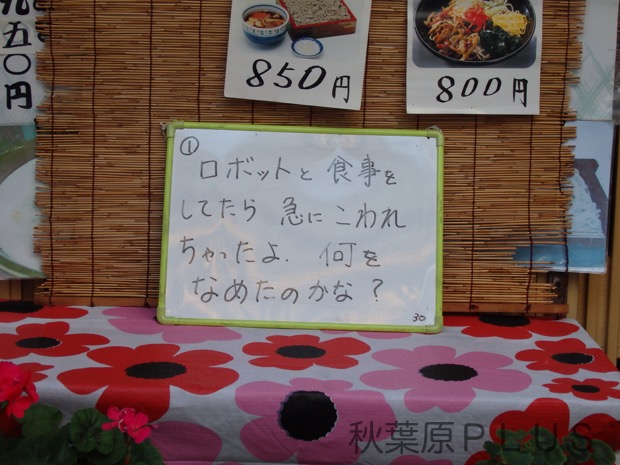 九五〇円
850円
800円
①
ロボットと 食事を
してたら 急にこわれ
ちゃったよ. 何を
なめたのかな?
30
秋葉原PLUS